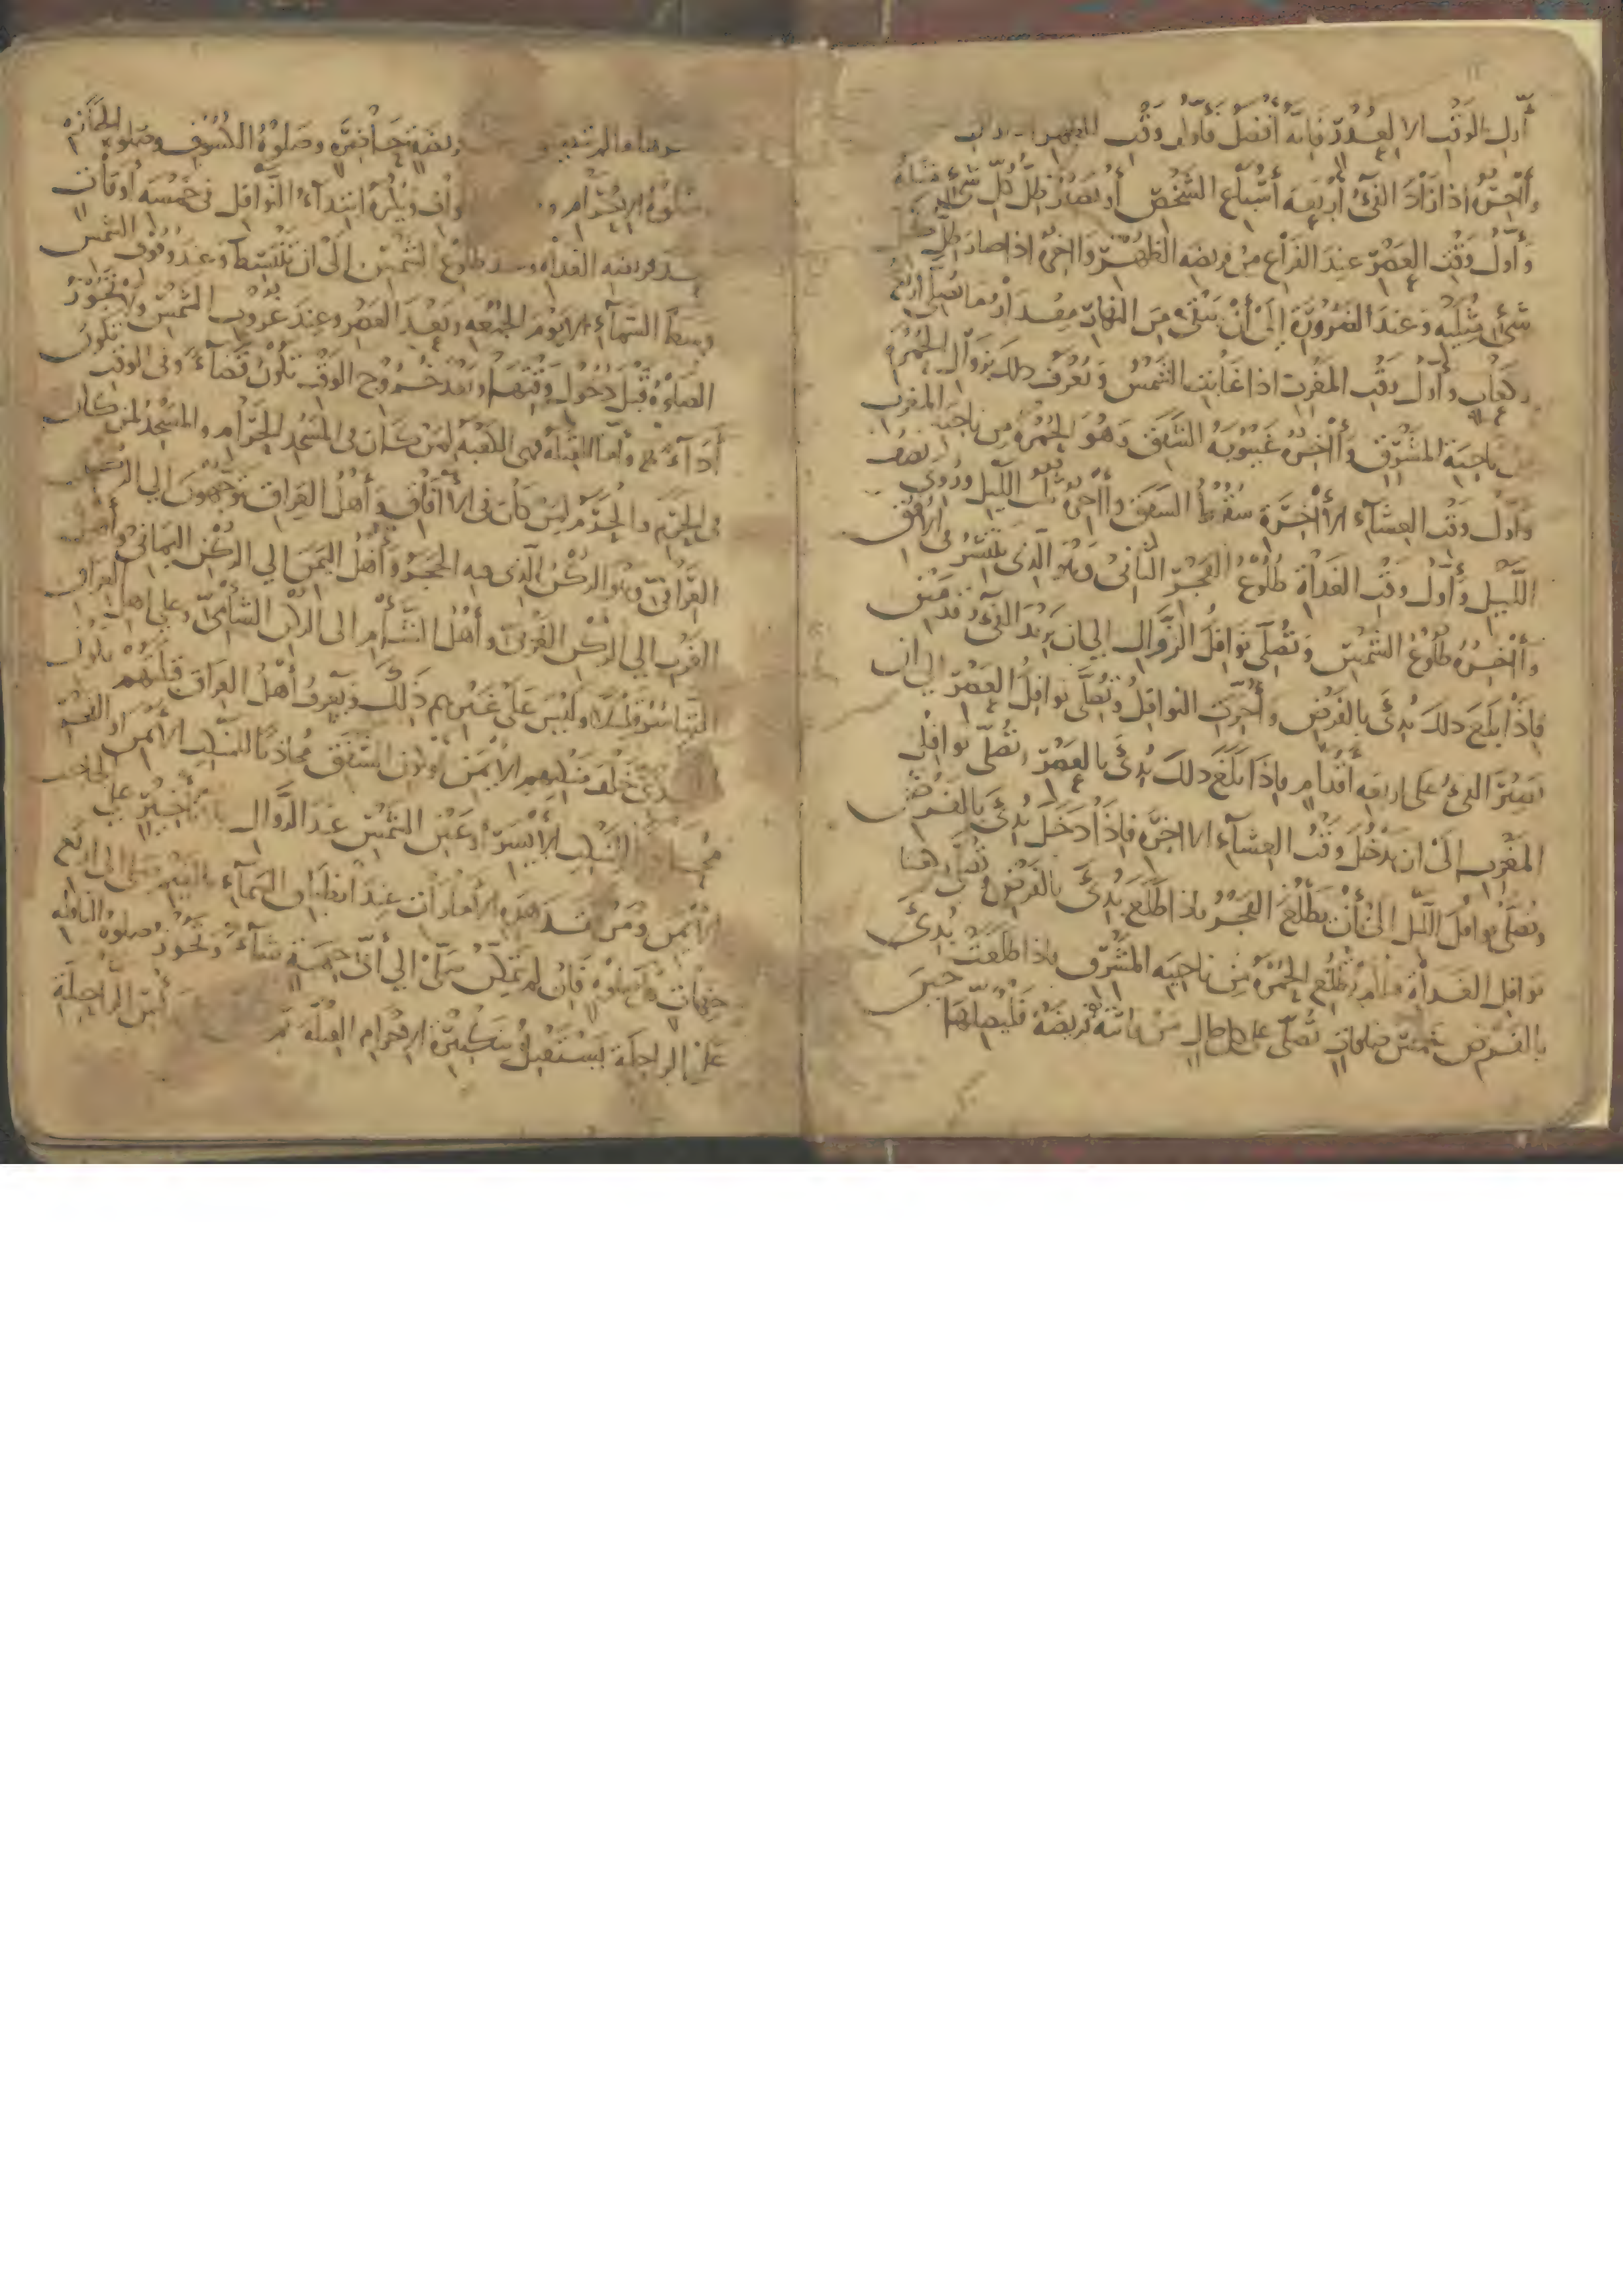 أول الوقت الا لعذر فانه أفضل فأول وقت للظهر
وآخره اذا زاد الفئ أربعة أسباع الشخص أو يصير ظل كل شئ مثله
وأول وقت العصر عند الفراغ من فريضة الظهر وآخره اذا صار ظل كل
شئ مثليه وعند الضرورة إلى أن يبقى من النهار مقدار ما يصلى اربع
ركعات وأول وقت المغرب اذا غابت الشمس ويعرف ذلك بزوال الحمرة
من ناحية المشرق وآخره غيبوبة الشفق وهو الحمرة من ناحية المغرب
وأول وقت العشاء الآخرة سقوط الشفق وآخره ثلث الليل وروي نصف
الليل وأول وقت الغداة طلوع الفجر الثاني وهو الذي ينتشر في الأفق
وآخره طلوع الشمس وتصلى نوافل الزوال الى ان يزيد الفئ قدمين
فاذا بلغ ذلك بدئ بالفرض وأخرت النوافل وتصلى نوافل العصر الى ان
يصير الفئ على اربعة أقدام فاذا بلغ ذلك بدئ بالعصر تصلى نوافل
المغرب الى ان يدخل وقت العشاء الاخرة فاذا دخل بدئ بالفرض
وتصلى نوافل الليل الى أن يطلع الفجر فاذا طلع بدئ بالفرض وتصلى
نوافل الغداة ما لم تطلع الحمرة من ناحية المشرق فاذا طلعت بدئ
بالفرض خمس صلوات تصلى على كل حال من فاتته فريضة فليصلها حين
فريضة حاضرة وصلوة الكسوف وصلوة الجنازة
وصلوة الإحرام ويكره ابتداء النوافل في خمسة أوقات
بعد فريضة الغداة وعند طلوع الشمس إلى ان تنبسط وعند وقوف الشمس
وسط السماء الا يوم الجمعة وبعد العصر وعند غروب الشمس ولا تجوز
الصلوة قبل دخول وقتها وبعد خروج الوقت تكون قضاء وفي الوقت تكون
أداء وأما القبلة فهي الكعبة لمن كان في المسجد الحرام والمسجد لمن كان
في الحرم والحرم لمن كان في الآفاق وأهل العراق يتوجهون إلي الركن
العراقي وهو الركن الذي فيه الحجر وأهل اليمن إلي الركن اليماني وأهل
الغرب إلي الركن الغربي وأهل الشأم الى الركن الشأمي وعلى اهل العراق
التياسر قليلا وليس على غيرهم ذلك ويعرف أهل العراق قبلتهم بكون
الجدي خلف منكبهم الأيمن أو كون الشفق محاذيا للمنكب الأيمن او الفجر
محاذيا للمنكب الأيسر أو عين الشمس عند الزوال على الحاجب
الأيمن ومن فقد هذه الأمارات عند انطباق السماء بالغيم صلى الى اربع
جهات فان لم يتمكن صلى إلي أى جهة شاء وتجوز صلوة النافلة
على الراحلة يستقبل بتكبيرة الإحرام القبلة ثم رأس الراحلة